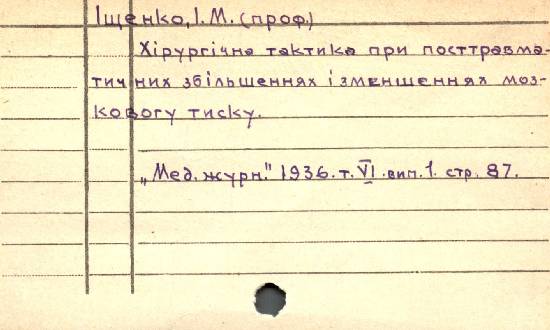 Іщенко, І. М. (проф.)
Хірургічна тактика при посттравма-
тичних збільшеннях і зменшеннях моз-
кового тиску.
„Мед. журн." 1936. т. VI. вип. 1. стр. 87.